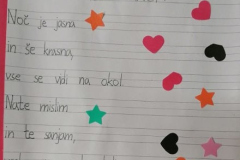 Noč je jasna
in še krasna,
vse se vidi na okol.
Nate mislim
in te sanjam,